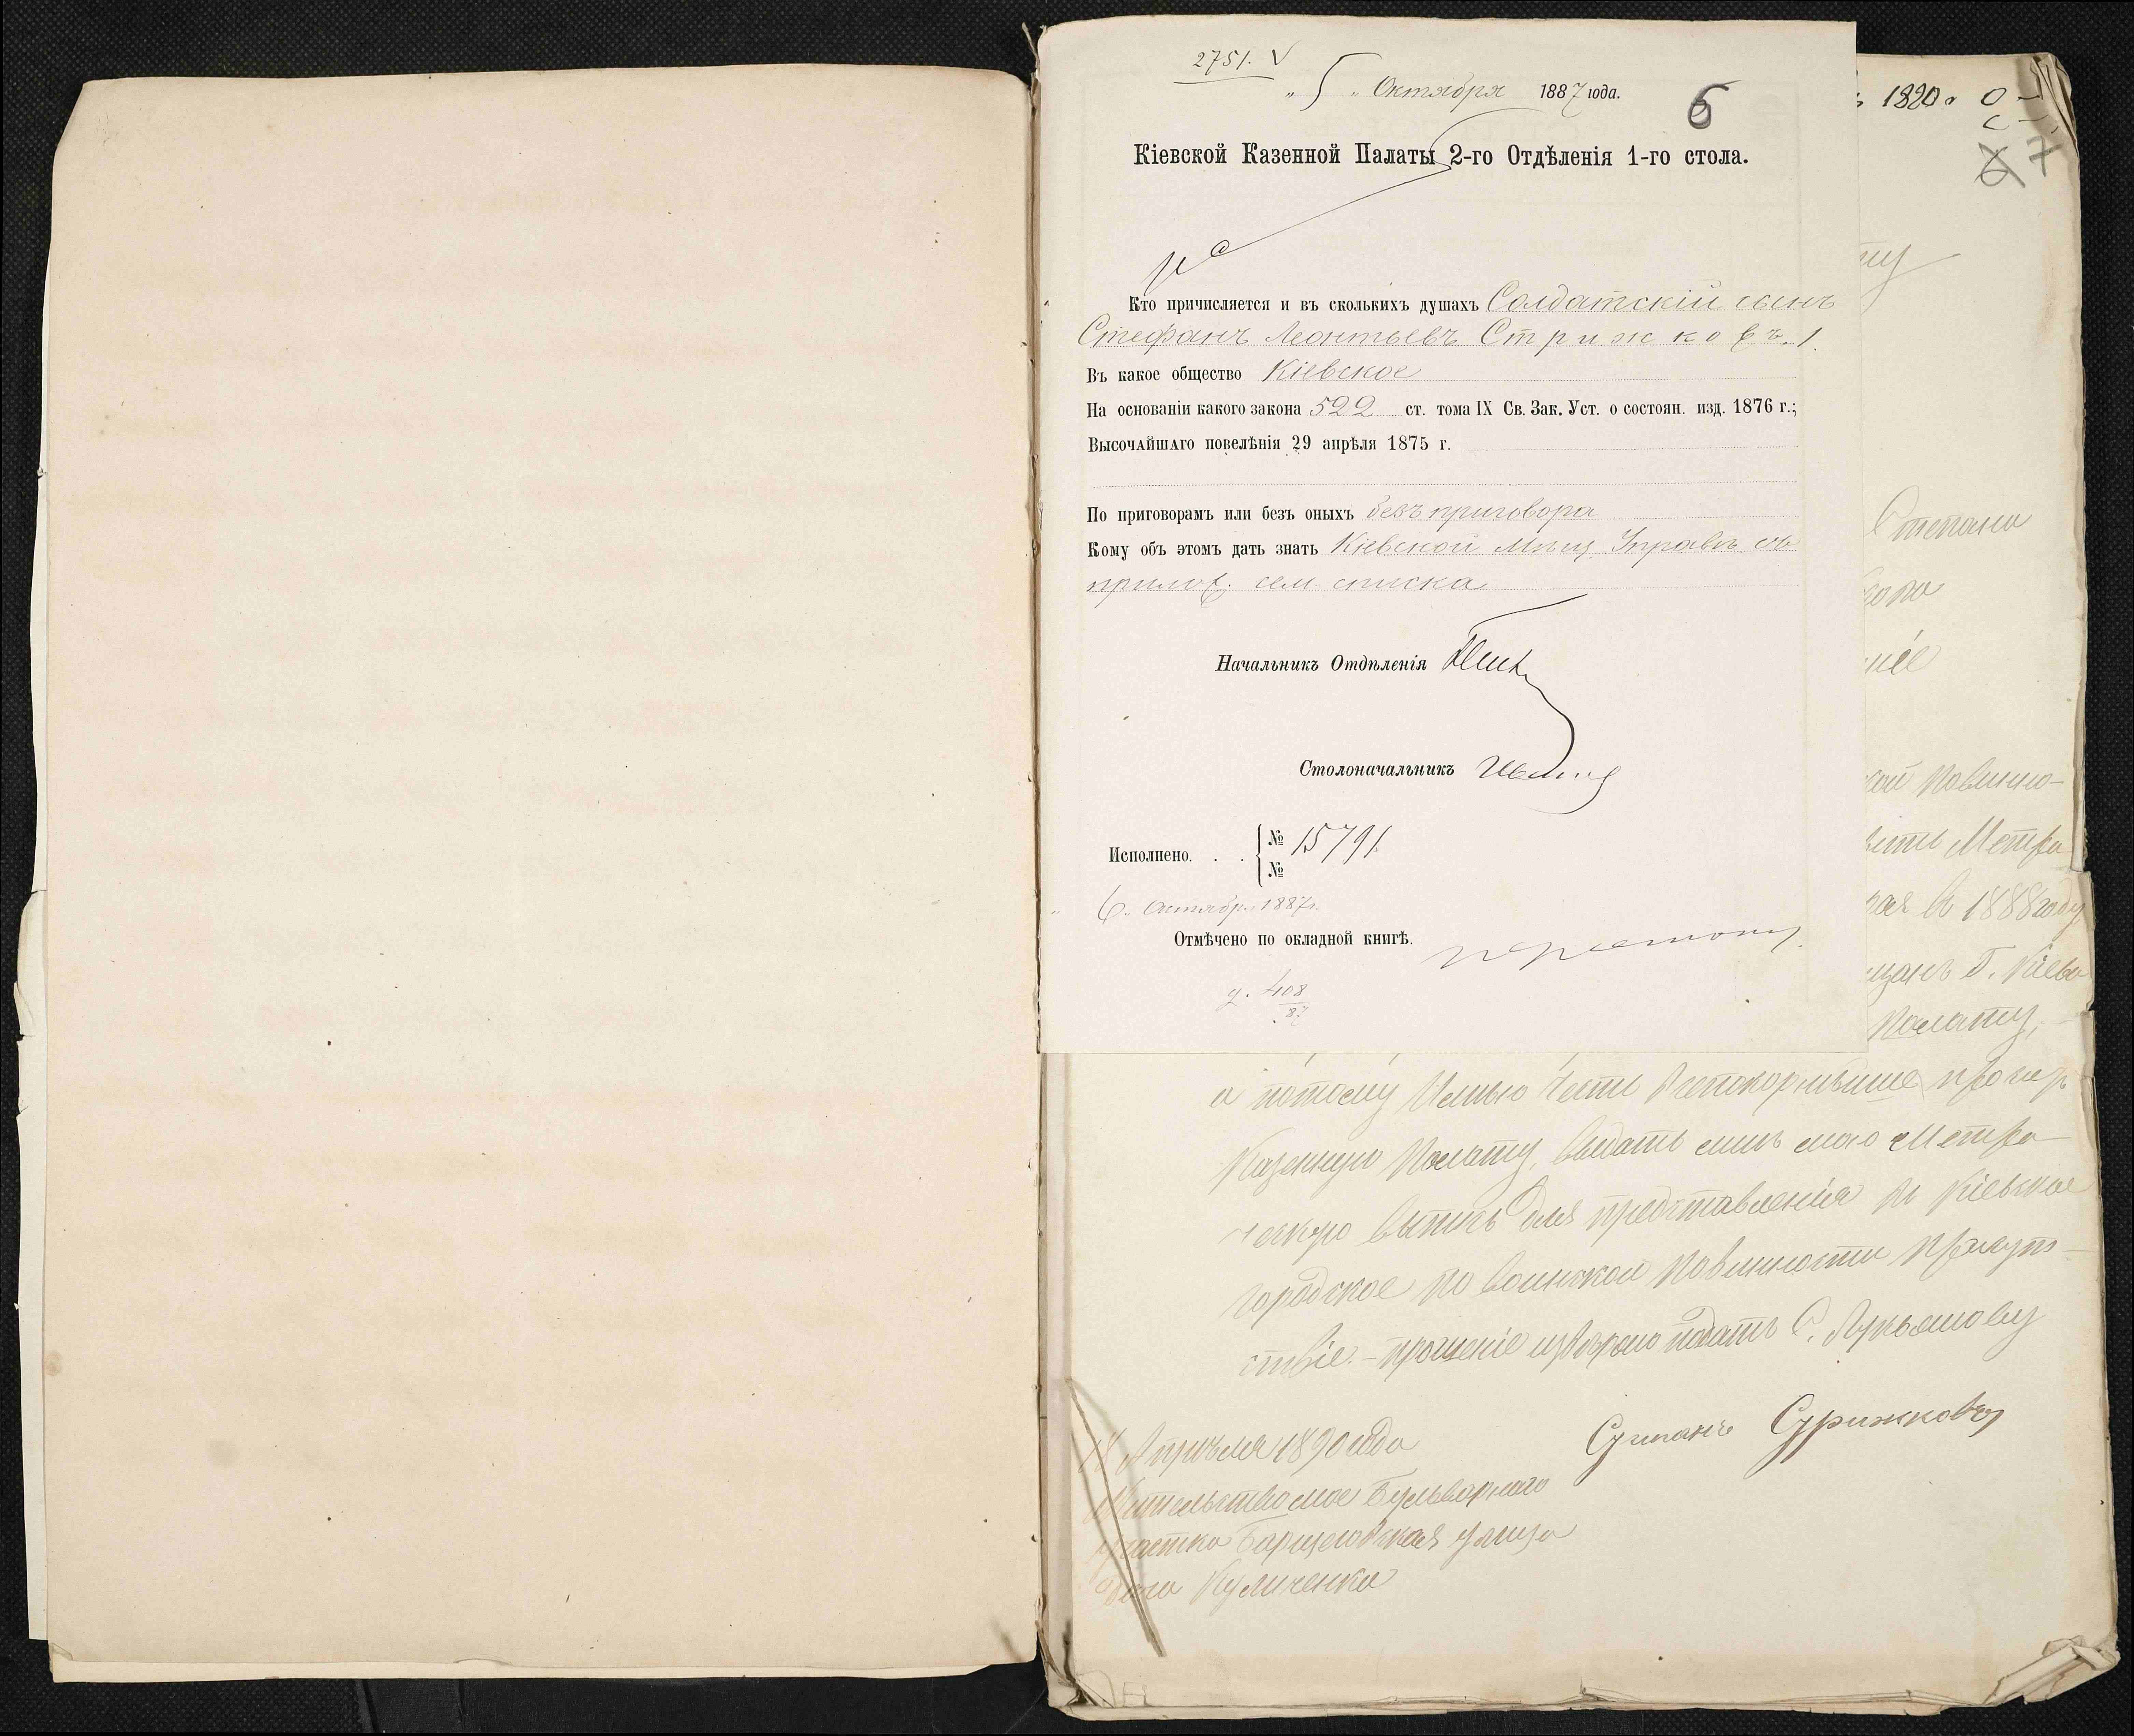 2751.
„ 5 „ Октября 1887 года.
6
Кіевской Казенной Палаты 2-го Отдѣленія 1-го стола.
Кто причисляется и въ сколькихъ душахъ Солдатскій сынъ
Стефанъ Леонтьевъ Стрижковъ. 1.
Въ какое общество Кіевское
На основаніи какого закона 522 ст. тома IX Св. Зак. Уст. о состоян. изд. 1876 г.;
Высочайшаго повелѣнія 29 апрѣля 1875 г.
По приговорамъ или безъ оныхъ безъ приговора
Кому объ этомъ дать знать Кіевской Мѣщ Управѣ съ
прилож. сем. списка
Начальникъ Отдѣленія
Столоначальникъ
Исполнено. . . № 15791.
№
„ 6 „ Октябр. 1887 г.
Отмѣчено по окладной книгѣ.
д. 408
87
7
Степана
кой Повинно-
Метри
въ 1888 году
Г. Кіева
Палату,
а потому Имѣю честь
Казенную Палату, выдать мнѣ мою Метри-
ческую выпись для представленія въ Кіевское
городское по воинской повинности присут-
ствіе. - прошеніе подать С. Лукьянову
Степанъ Стрижковъ
18 Апрѣля 1890 года
Жительство мое Бульварнаго
участка улица
домъ Куличенка